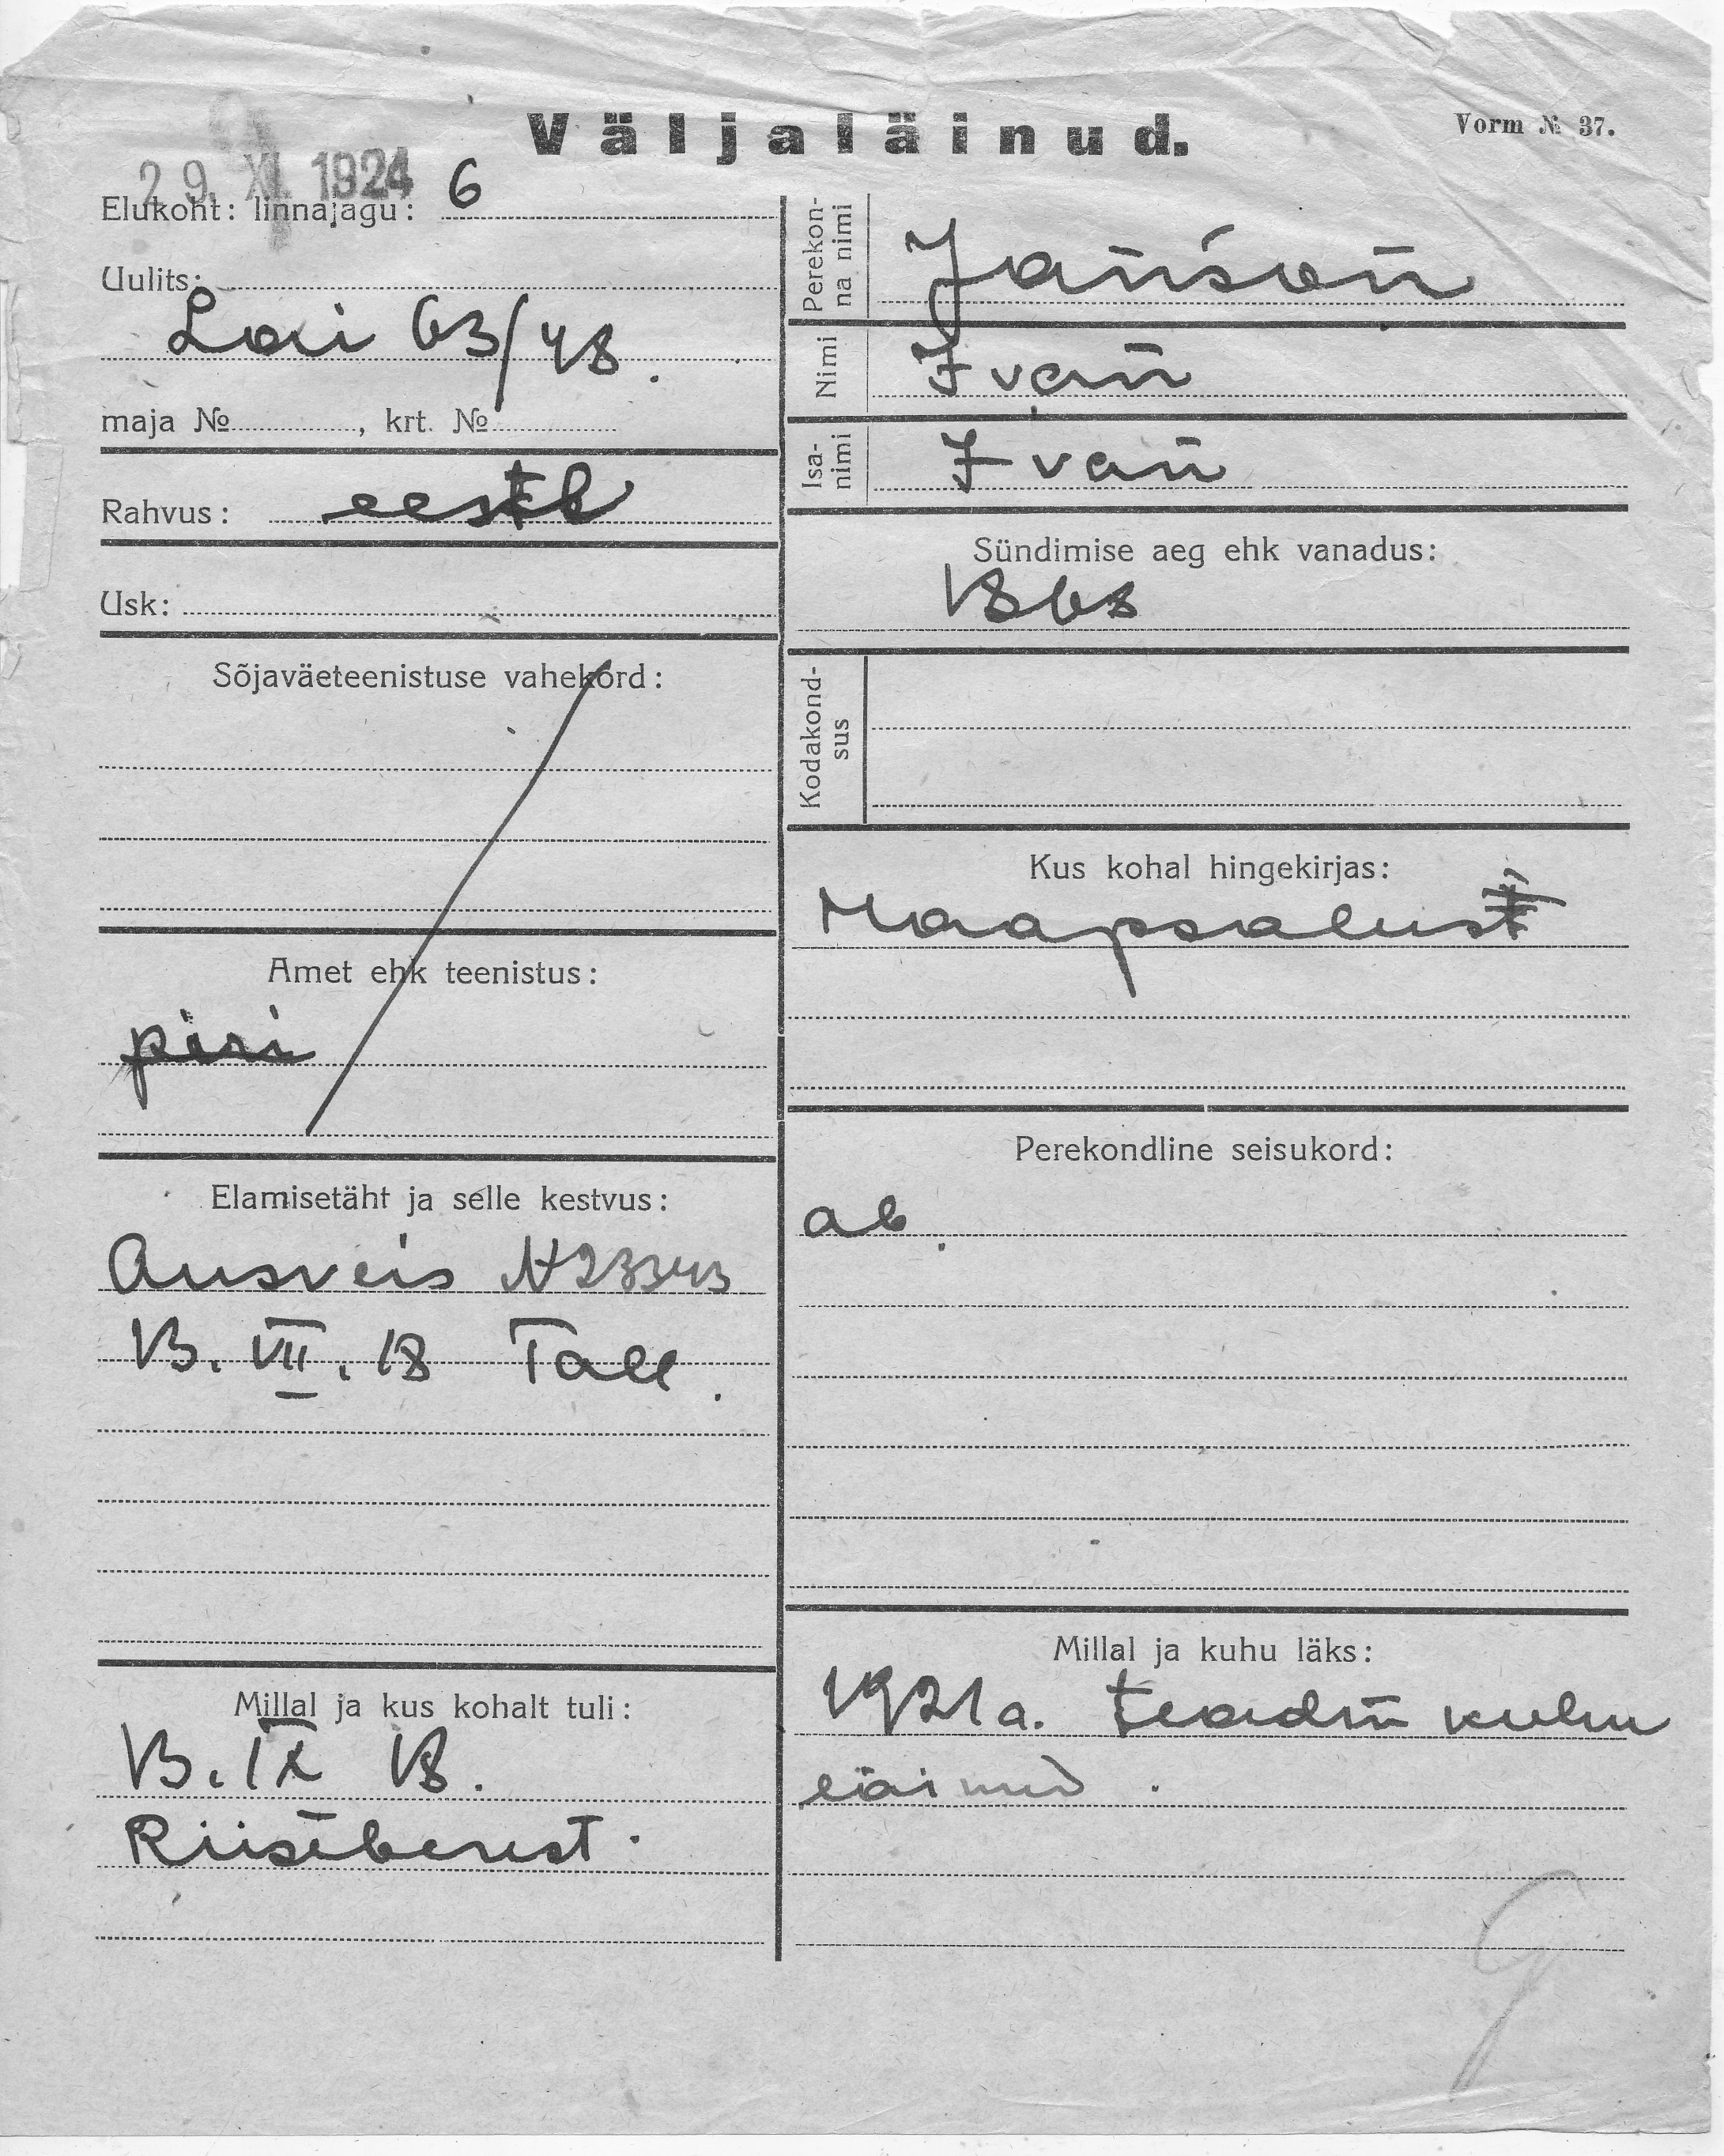 Väljaläinud.
Vorm № 37.
29. XI. 1924
Elukoht: linnajagu: 6
Uulits:
Lai 63/48.
maja № , krt. №
Rahvus: eestl
Usk:
Sõjaväeteenistuse vahekord:
Amet ehk teenistus:
Elamisetäht ja selle kestvus:
Ausveis № 23343
13. VII. 18 Tall.
Millal ja kus kohalt tuli:
13. IX 18.
Riisiberest.
Perekon-
na nimi
Janson
Nimi
Ivan
Isa-
nimi
Ivan
Sündimise aeg ehk vanadus:
1868
Kodakond-
sus
Kus kohal hingekirjas:
Haapsalust
Perekondline seisukord:
ab.
Millal ja kuhu läks:
1921 a. teadm kuhu
läinud.